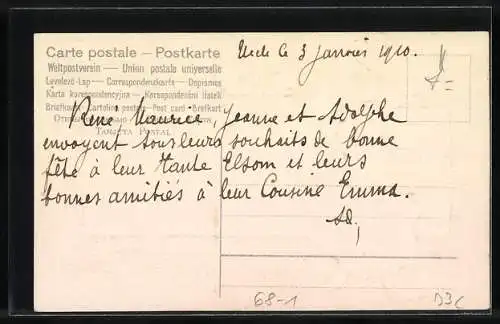 Carte postale – Postkarte
Weltpostverein — Union postale universelle
Levelező-Lap — Correspondenzkarte — Dopisnice
Karta korespondencyjna — Korespondenční lístek
Briefkaart — Cartolina postale — Post card — Brefkort
Tarjeta Postal
Uccle le 3 janvier 1910.
René Maurice, Jeanne et Adolphe
envoyent tous leurs souhaits de bonne
fête à leur Tante Elsom et leurs
bonnes amitiés à leur Cousine Emma.
Ad,
68-1
D3C